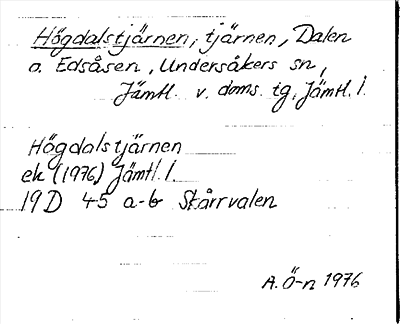 Högdalstjärnen, tjärnen, Dalen
o. Edsåsen, Undersåkers sn,
Jämtl. v. doms. tg, Jämtl. l.
Högdalstjärnen
ek (1976) Jämtl. l.
19D 45 a-b Skårrvalen
A. Ö-n 1976